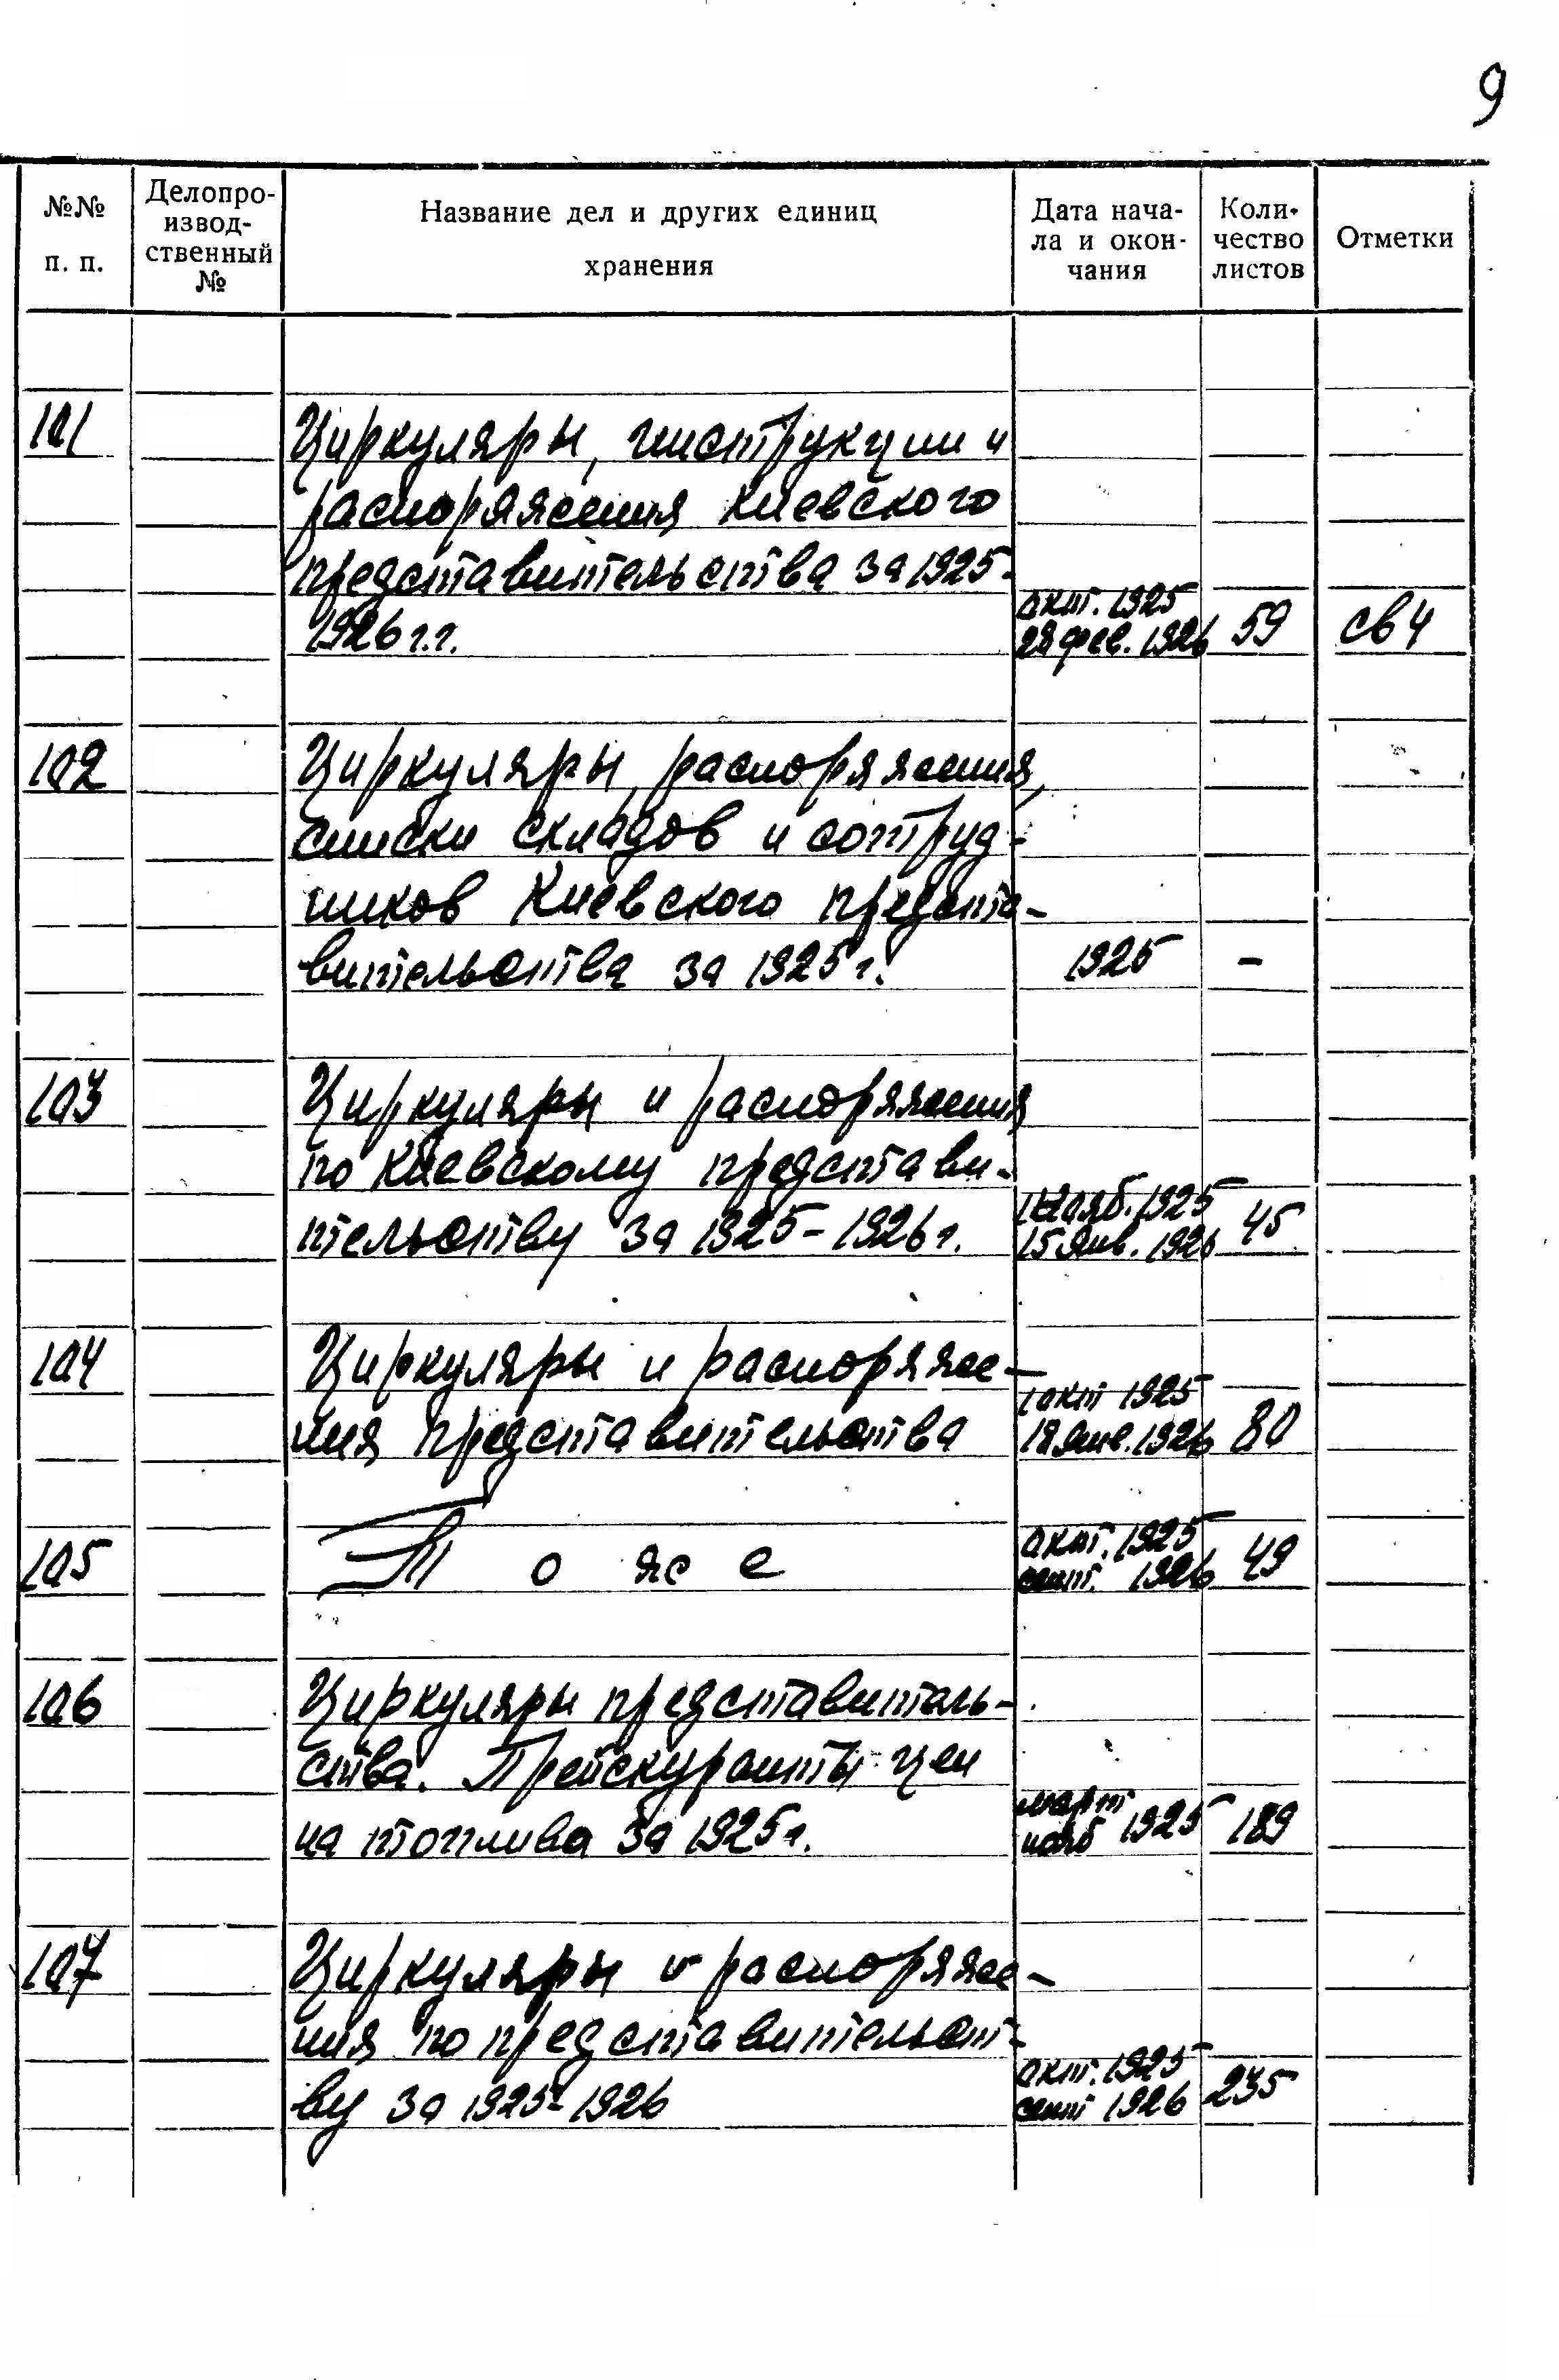 9
№№ п. п.
Делопро-
извод-
ственный
№
Название дел и других единиц
хранения
Дата нача-
ла и окон-
чания
Коли-
чество
листов
Отметки
101
Циркуляры, инструкции и
распоряжения Киевского
представительства за 1925-
1926 г.г.
окт. 1925
28 фев. 1926
59
св 4
102
Циркуляры, распоряжения,
списки складов и сотруд-
ников Киевского предста-
вительства за 1925 г.
1925
-
103
Циркуляры и распоряжения
по Киевскому представи-
тельству за 1925-1926 г.
нояб. 1925
15 янв. 1926
45
104
Циркуляры и распоряже-
ния представительства
1 окт 1925
18 янв. 1926
80
105
То же
окт. 1925
сент. 1926
49
106
Циркуляры представитель-
ства. Прейскуранты цен
на топлива за 1925 г.
март
нояб 1925
189
107
Циркуляры и распоряже-
ния по представительст-
ву за 1925-1926
окт. 1925
сент 1926
235